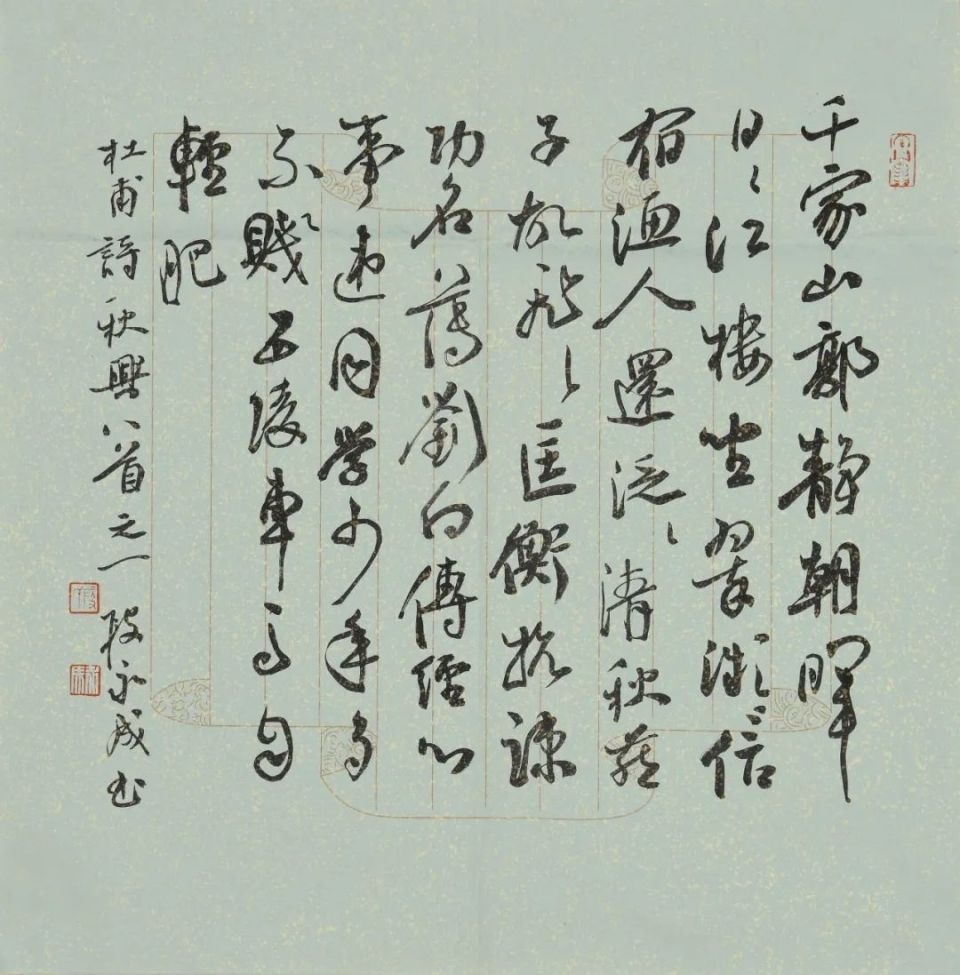 千家山郭靜朝暉
日々江樓坐翠微信
宿漁人還泛々清秋燕
子故飛々匡衡抗疎
功名薄劉向傳經心
事違同學少年多
不賤五陵車馬自
輕肥
杜甫詩秋興八首之一 段永成书